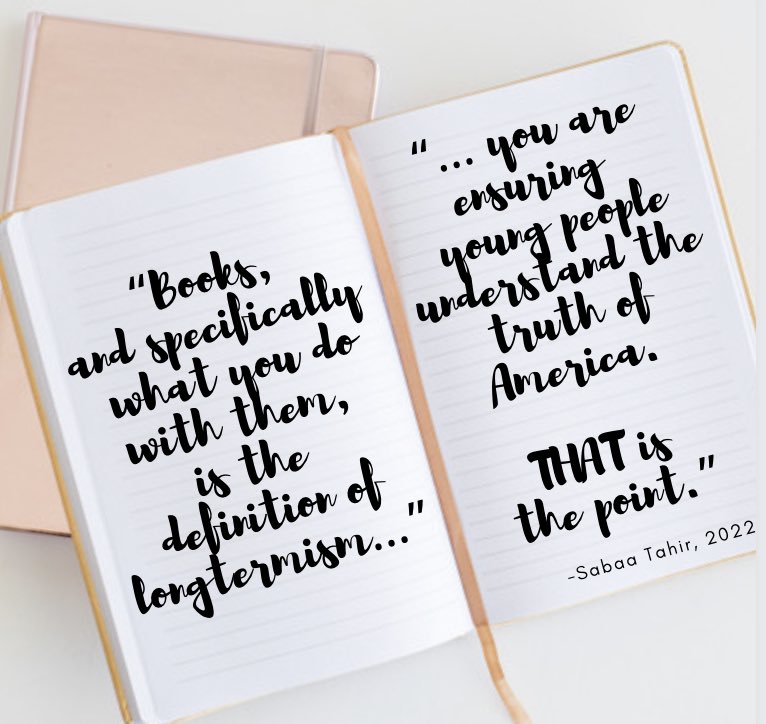 “Books,
and specifically
what you do
with them,
is the
definition of
longtermism...”
“... you are
ensuring
young people
understand the
truth of
America.
THAT is
the point.”
-Sabaa Tahir, 2022